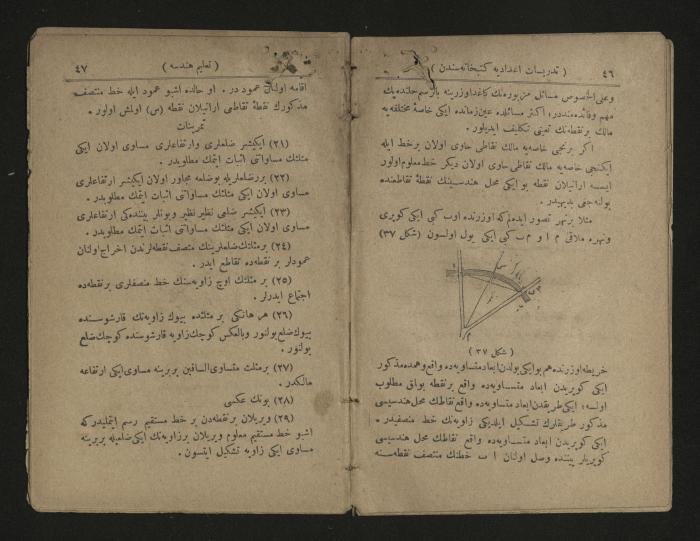 ٤٦ ( تدريسات اعداديه كتبخانه‌سندن )
وعلى الخصوص مسائل مزبوره‌نك كاغد اوزرينه بالرسم حلنده پك
مهم وفائده‌منددر؛ اكثر مسائلده عين زمانده ايكى خاصهٔ مختلفه‌يه
مالك برنقطه‌نك تعيينى تكليف ايديلور .
اكر برنجى خاصه‌يه مالك نقاطى حاوى اولان برخط ايله
ايكنجى خاصه‌يه مالك نقاطى حاوى اولان ديكر خط معلوم اولور
ايسه ارانيلان نقطه بو ايكى محل هندسينك نقطهٔ تقاطعنده
بولنه‌جغى بديهيدر .
مثلا برنهر تصور ايده‌لم كه اوزرنده اوب كبى ايكى كوپرى
ونهره ملاقى م ا و م ب كبى ايكى يول اولسون (شكل ٣٧)
( شكل ٣٧ )
خريطه اوزرنده هم بو ايكى يولدن ابعاد متساويه‌ده واقع وهمده مذكور
ايكى كوپريدن ابعاد متساويه‌ده واقع برنقطه بولمق مطلوب
اولسه؛ ايكى طريقدن ابعاد متساويه‌ده واقع نقاطك محل هندسيسى
مذكور طريقلرك تشكيل ايلديكى زاويه‌نك خط منصفيدر .
ايكى كوپريدن ابعاد متساويه‌ده واقع نقاطك محل هندسيسى
كوپريلر بيننده وصل اولنان ا ب خطنك منتصف نقطه‌سنه
( تعليم هندسه ) ٤٧
اقامه اولنان عموددر . او حالده اشبو عمود ايله خط منصف
مذكورك نقطهٔ تقاطعى ارانيلان نقطه (س) اولمش اولور .
تمرينات
(٢١) ايكيشر ضلعلرى وارتفاعلرى مساوى اولان ايكى
مثلثك مساواتنى اثبات ايتمك مطلوبدر .
(٢٢) بررضلعلريله بوضلعه مجاور اولان ايكيشر ارتفاعلرى
مساوى اولان ايكى مثلثك مساواتنى اثبات ايتمك مطلوبدر .
(٢٣) ايكيشر ضلعى نظير نظيره وبونلر بيننده‌كى ارتفاعلرى
مساوى اولان ايكى مثلثك مساواتنى اثبات ايتمك مطلوبدر .
(٢٤) برمثلثك ضلعلرينك منتصف نقطه‌لرندن اخراج اولنان
عمودلر بر نقطه‌ده تقاطع ايدر .
(٢٥) بر مثلثك اوچ زاويه‌سنك خط منصفلرى برنقطه‌ده
اجتماع ايدرلر .
(٢٦) هر هانكى بر مثلثده بيوك زاويه‌نك قارشوسنده
بيوك ضلع بولنور وبالعكس كوچك زاويه قارشوسنده كوچك ضلع
بولنور .
(٢٧) برمثلث متساوى الساقين بربرينه مساوى ايكى ارتفاعه
مالكدر .
(٢٨) بونك عكسى
(٢٩) ويريلان برنقطه‌دن بر خط مستقيم رسم ايتمليدركه
اشبو خط مستقيم معلوم ويريلان برزاويه‌نك ايكى ضلعيله بربرينه
مساوى ايكى زاويه تشكيل ايتسون .